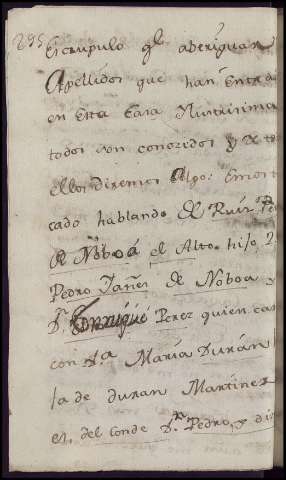 295
Escrupulo ql aberiguar
Apellidos que han Entrad
en Esta Casa Ylustrisima
todos son conozidos y de to
ellos diremos Algo:
cado hablando de Ruiz Pe
de Nóboa el Alto. hijo
Pedro Yañes de Noboa y
Dn Enrrique Perez quien cas
con Da Maria Durán
Ja de duran Martinez
es, del Conde Dn Pedro, y di